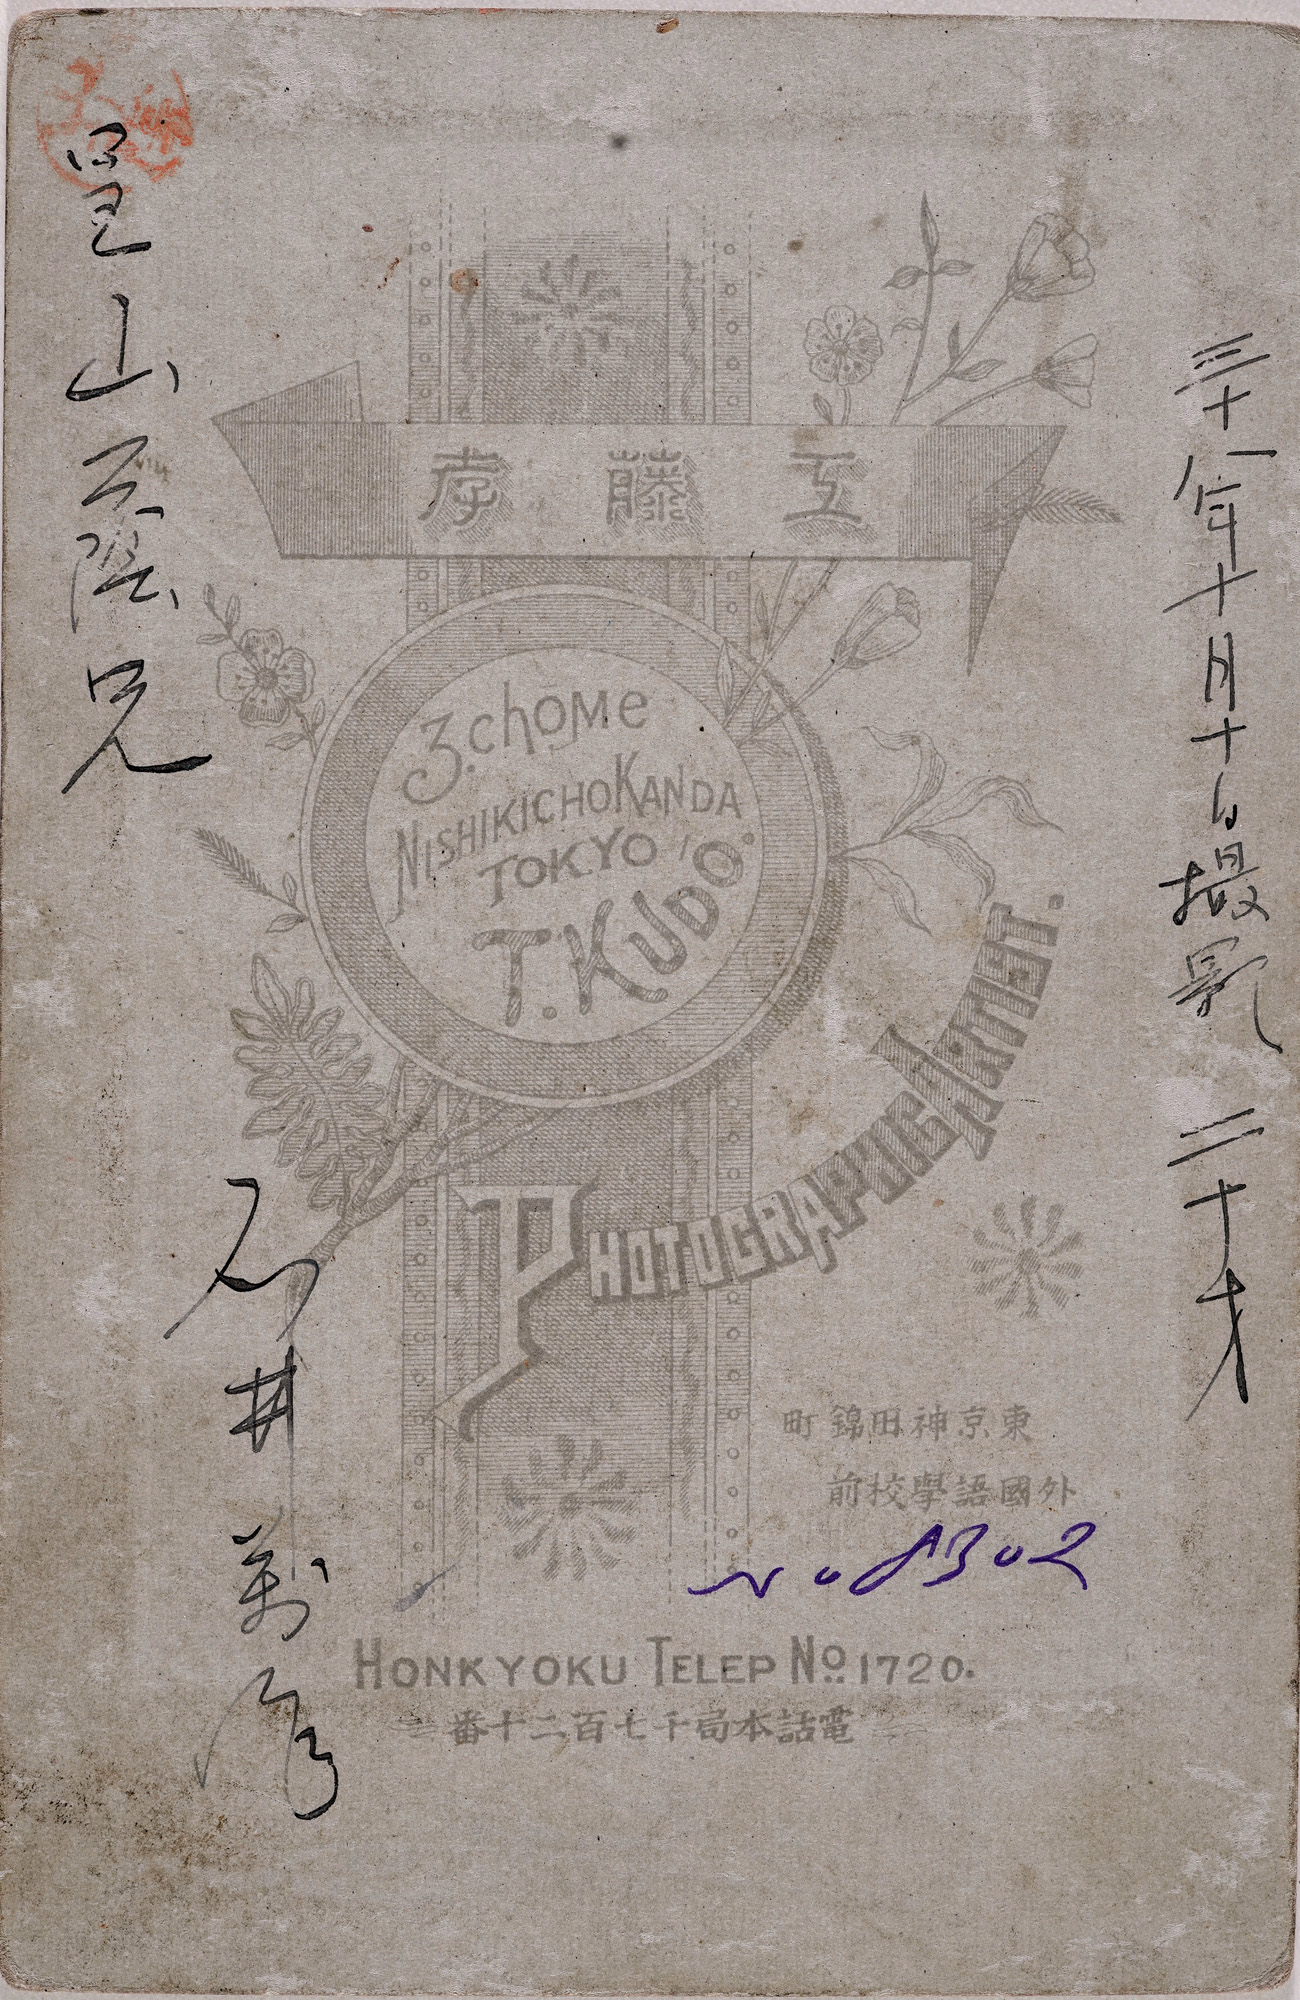 三十一年十月十日撮影 二十才
呈山雲蔭兄
石井 萬作
孝藤工
3.chome
NISHIKICHO KANDA
TOKYO
T.KUDO.
PHOTOGRAPHIC ARTIST.
町錦田神京東
前校學語國外
No 8302
HONKYOKU TELEP No. 1720.
番十二百七千局本話電